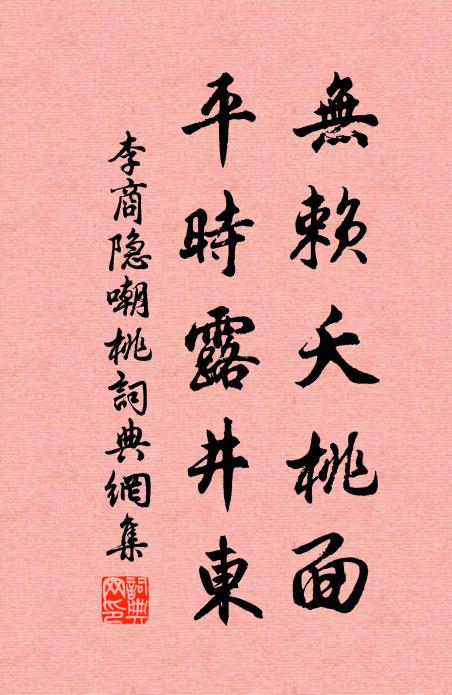 無赖夭桃面
平時露井東
李商隐嘲桃詞典網集
詞典网印